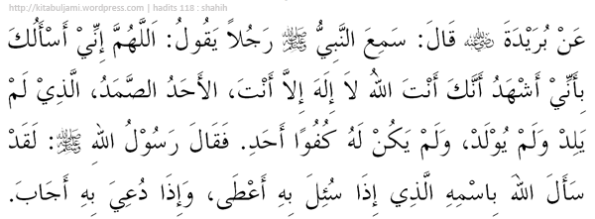 http://kitabuljami.wordpress.com | hadits 118 : shahih
عَنْ بُرَيْدَةَ رضي الله عنه قَالَ: سَمِعَ النَّبِيُّ ﷺ رَجُلاً يَقُولُ: اَللَّهُمَّ إِنِّيْ أَسْأَلُكَ
بِأَنِّيْ أَشْهَدُ أَنَّكَ أَنْتَ اللهُ لاَ إِلَهَ إِلاَّ أَنْتَ، الأَحَدُ الصَّمَدُ، الَّذِيْ لَمْ
يَلِدْ وَلَمْ يُوْلَدْ، وَلَمْ يَكُنْ لَهُ كُفُوًا أَحَدِ. فَقَالَ رَسُوْلُ اللهِ ﷺ: لَقَدْ
سَأَلَ اللهَ بِاسْمِهِ الَّذِي إِذَا سُئِلَ بِهِ أَعْطَى، وَإِذَا دُعِيَ بِهِ أَجَابَ.